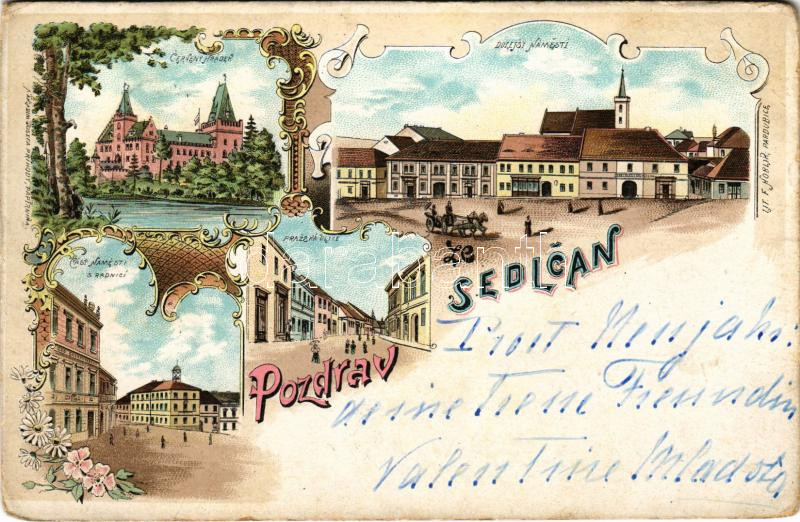 ČERVENÝ HRÁDEK
DOLEJŠÍ NÁMĚSTÍ
LIT. F. HOBLÍK, PARDUBICE
ČÁST NÁMĚSTÍ
S RADNICÍ
PRAŽSKÁ ULICE
Pozdrav
ze
SEDLČAN
Prost Neujahr!
deine treue Freundin
Valentine Mladota